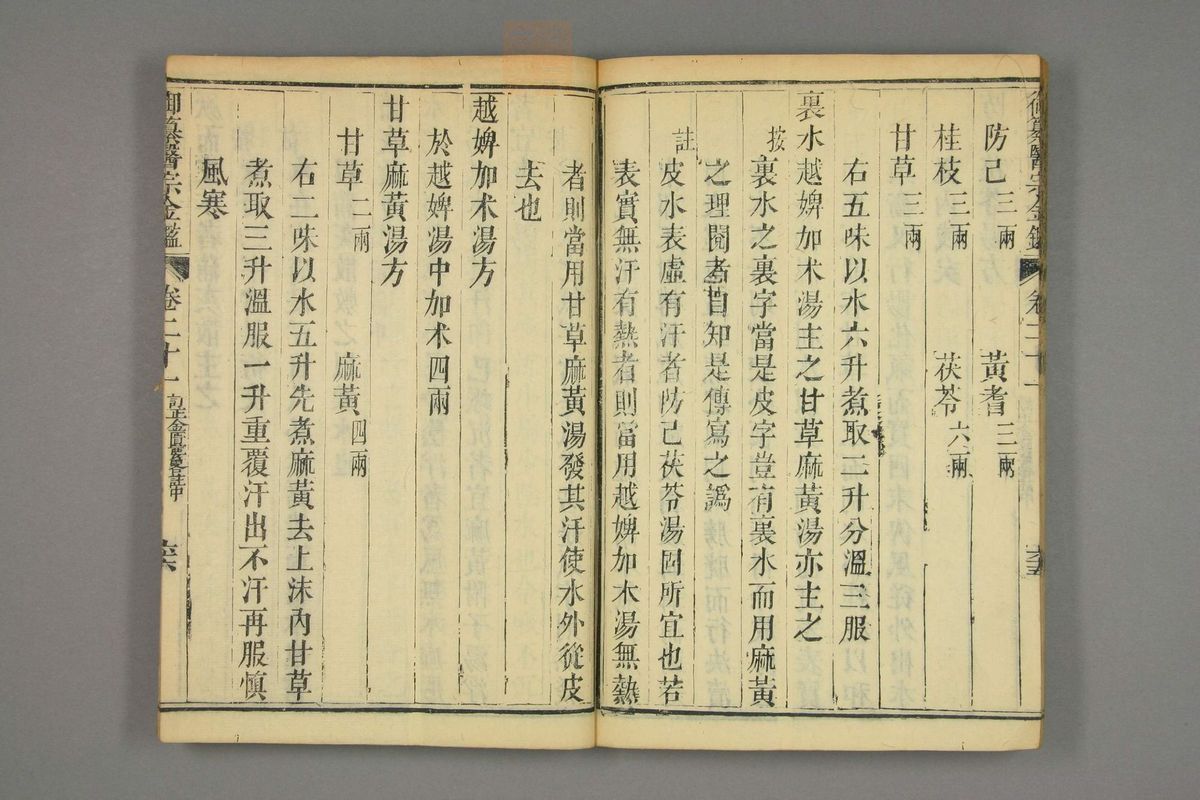 防己三兩 黃耆三兩
桂枝三兩 茯苓六兩
甘草二兩
右五味以水六升煮取二升分溫三服
裏水越婢加朮湯主之甘草麻黃湯亦主之
按裏水之裏字當是皮字豈有裏水而用麻黃
之理閱者自知是傳寫之譌
註皮水表虛有汗者防己茯苓湯固所宜也若
表實無汗有熱者則當用越婢加朮湯無熱
者則當用甘草麻黃湯發其汗使水外從皮
去也
越婢加朮湯方
於越婢湯中加朮四兩
甘草麻黃湯方
甘草二兩 麻黃四兩
右二味以水五升先煮麻黃去上沫內甘草
煮取三升溫服一升重覆汗出不汗再服慎
風寒
御纂醫宗金鑑 卷二十一 訂正金匱要畧註中 六六